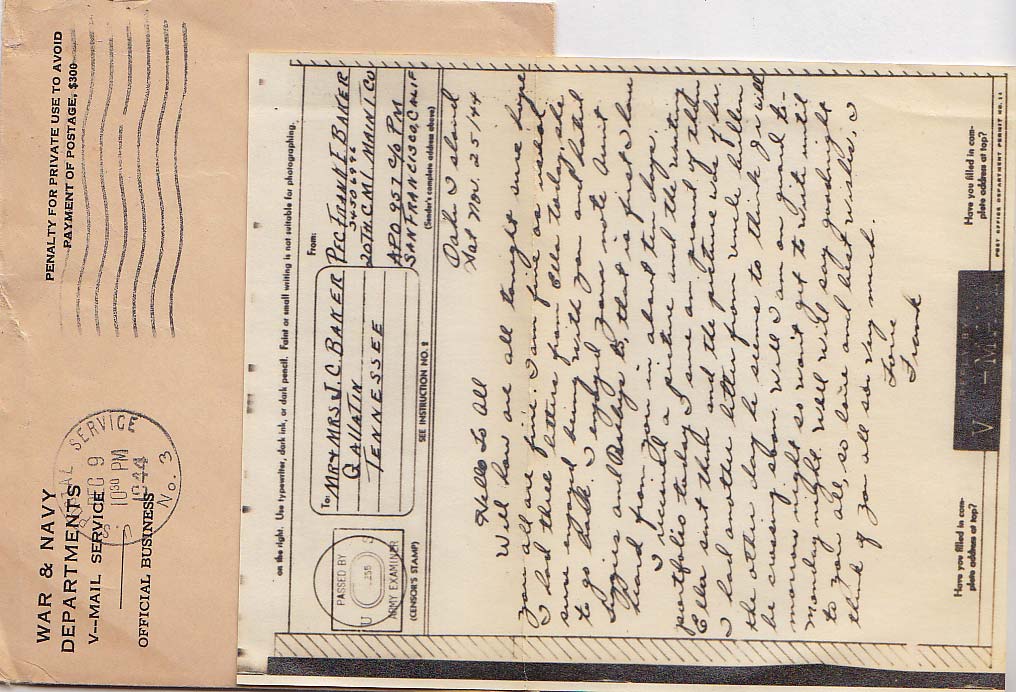 WAR & NAVY
DEPARTMENTS
V--MAIL SERVICE
OFFICIAL BUSINESS
POSTAL SERVICE
DEC 9
10 30 PM
1944
No. 3
PENALTY FOR PRIVATE USE TO AVOID
PAYMENT OF POSTAGE, $300
on the right. Use typewriter, dark ink, or dark pencil. Faint or small writing is not suitable for photographing.
PASSED BY
U S
ARMY EXAMINER
(CENSOR'S STAMP)
To:
MR & MRS J.C. BAKER
GALLATIN
TENNESSEE
SEE INSTRUCTION NO. 2
From:
PFC. FRANK E BAKER
34506996
20TH C.M. MAIN T. CO
APO 957 C/O PM
SAN FRANCISCO, CALIF
(Sender's complete address above)
Oahu Island
Sat Nov. 25/44
Hello To All
Will how are all tonight sure hope
you all are fine. I am fine as usual.
I had three letters from Ella today, she
sure enjoyed being with you and hated
to go back. I enjoyed your note Aunt
and Buddy's to, that is first I have
heard from you in about ten days.
I received a picture and the writing
portfolio today. I sure am proud of them
Ella sent that and the picture is of her.
I had another letter from uncle Allen
the other day he seems to think I will
be coming soon. Will I am on guard to-
morrow night so wont get to write until
Monday night. Well will say goodnight
to you all, so love and best wishes, I
think of you all so very much.
Love
Frank
Have you filled in com-
plete address at top?
V-MAIL
Have you filled in com-
plete address at top?
POST OFFICE DEPARTMENT PERMIT NO. 11